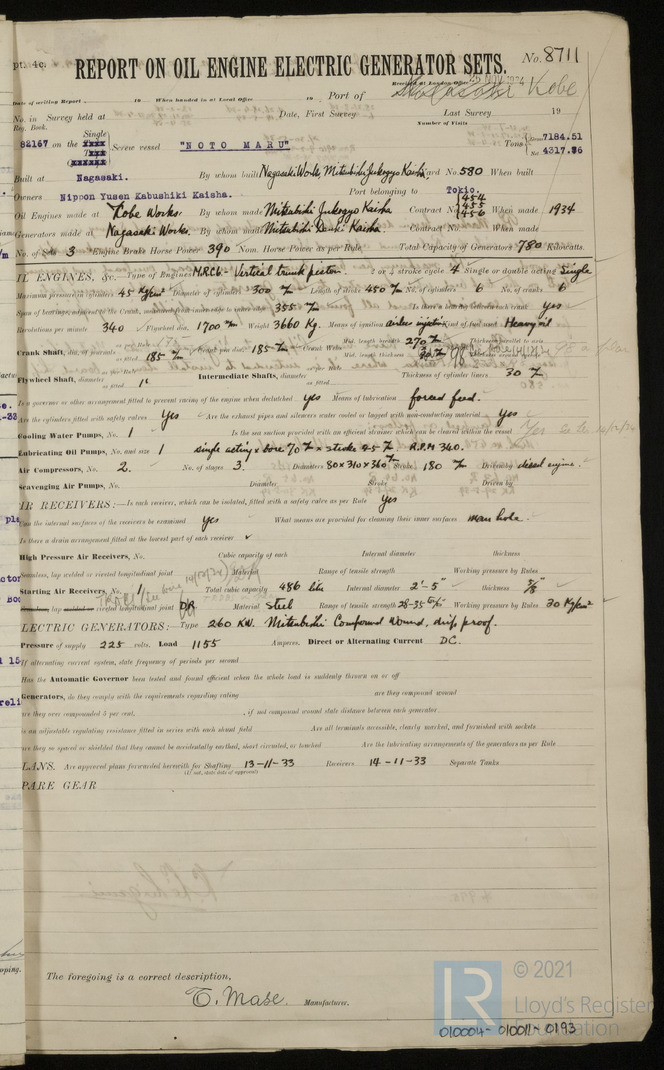 pt. 4c.
REPORT ON OIL ENGINE ELECTRIC GENERATOR SETS.
No. 8711
Received at London Office 26 NOV 1934
Date of writing Report 19 When handed in at Local Office 19 Port of Kobe
No. in Survey held at Date, First Survey Last Survey 19
Reg. Book. Number of Visits
82167 on the Single Screw vessel "NOTO MARU" Tons Gross 7184.51 Net 4317.76
Built at Nagasaki. By whom built Nagasaki Works, Mitsubishi Jukogyo Kaisha. Yard No. 580 When built
Owners Nippon Yusen Kabushiki Kaisha. Port belonging to Tokio.
Oil Engines made at Kobe Works. By whom made Mitsubishi Jukogyo Kaisha Contract No. 454 455 456 When made 1934
Generators made at Nagasaki Works. By whom made Mitsubishi Denki Kaisha. Contract No. When made
No. of Sets 3 Engine Brake Horse Power 390 Nom. Horse Power as per Rule Total Capacity of Generators 780 Kilowatts.
IL ENGINES, &c. Type of Engines MRC6 - Vertical trunk piston. 2 or 4 stroke cycle 4 Single or double acting Single
Maximum pressure in cylinders 45 Kg/cm² Diameter of cylinders 300 m/m Length of stroke 450 m/m No. of cylinders 6 No. of cranks 6
Span of bearings, adjacent to the Crank, measured from inner edge to inner edge 355 m/m Is there a bearing between each crank Yes
Revolutions per minute 340 Flywheel dia. 1700 m/m Weight 3660 Kg. Means of ignition airless injection Kind of fuel used Heavy oil
Crank Shaft, dia. of journals as fitted 185 m/m Crank pin dia. 185 m/m Crank Webs Mid. length breadth 270 m/m Mid. length thickness
Flywheel Shaft, diameter as fitted Intermediate Shafts, diameter as fitted Thickness of cylinder liners 30 m/m
Is a governor or other arrangement fitted to prevent racing of the engine when declutched yes Means of lubrication forced feed.
Are the cylinders fitted with safety valves Yes Are the exhaust pipes and silencers water cooled or lagged with non-conducting material yes
Cooling Water Pumps, No. 1 Is the sea suction provided with an efficient strainer which can be cleared within the vessel Yes
Lubricating Oil Pumps, No. and size 1 single acting x bore 70 m/m x stroke 95 m/m R.P.M 340.
Air Compressors, No. 2. No. of stages 3. Diameters 80x310x360 m/m Stroke 180 m/m Driven by diesel engine.
Scavenging Air Pumps, No. Diameter Stroke Driven by
IR RECEIVERS:—Is each receiver, which can be isolated, fitted with a safety valve as per Rule Yes
Can the internal surfaces of the receivers be examined yes What means are provided for cleaning their inner surfaces man hole.
Is there a drain arrangement fitted at the lowest part of each receiver
High Pressure Air Receivers, No. Cubic capacity of each Internal diameter thickness
Seamless, lap welded or riveted longitudinal joint Material Range of tensile strength Working pressure by Rules
Starting Air Receivers, No. 1 Total cubic capacity 486 litre Internal diameter 2'-5" thickness 5/8"
Seamless, lap welded or riveted longitudinal joint DR Material Steel Range of tensile strength 28-35 Working pressure by Rules 30 Kg/cm²
LECTRIC GENERATORS:—Type 260 KW. Mitsubishi Compound Wound, drip proof.
Pressure of supply 225 volts. Load 1155 Amperes. Direct or Alternating Current DC.
If alternating current system, state frequency of periods per second
Has the Automatic Governor been tested and found efficient when the whole load is suddenly thrown on or off
Generators, do they comply with the requirements regarding rating are they compound wound
are they over compounded 5 per cent. , if not compound wound state distance between each generator
is an adjustable regulating resistance fitted in series with each shunt field Are all terminals accessible, clearly marked, and furnished with sockets
are they so spaced or shielded that they cannot be accidentally earthed, short circuited, or touched Are the lubricating arrangements of the generators as per Rule
LANS. Are approved plans forwarded herewith for Shafting 13-11-33 Receivers 14-11-33 Separate Tanks
(If not, state date of approval)
PARE GEAR
The foregoing is a correct description,
T. Mase. Manufacturer.
© 2021
Lloyd's Register
Foundation
010004-010011-0193